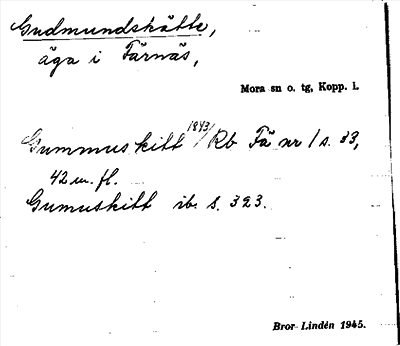 Gudmundskätte,
äga i Färnäs,
Mora sn o. tg, Kopp. l.
Gummuskitt 1843/ Rb Fä nr 1 s. 33,
42 m. fl.
Gumuskitt ib. s. 323.
Bror Lindén 1945.